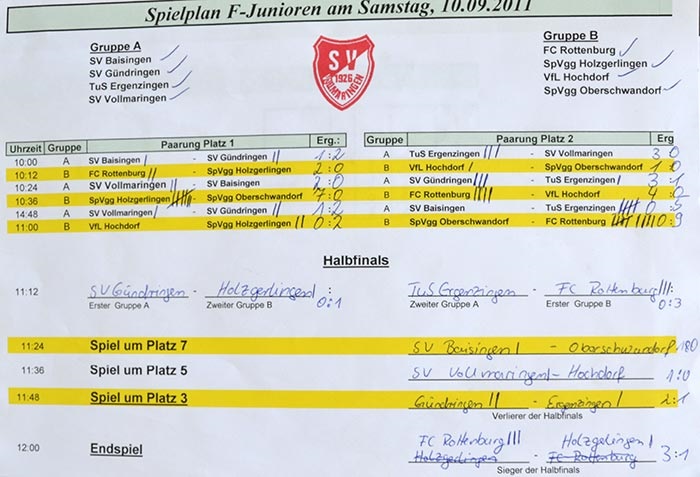 Spielplan F-Junioren am Samstag, 10.09.2011
Gruppe A
SV Baisingen
SV Gündringen
TuS Ergenzingen
SV Vollmaringen
SV
1926
VOLLMARINGEN
Gruppe B
FC Rottenburg
SpVgg Holzgerlingen
VfL Hochdorf
SpVgg Oberschwandorf
Uhrzeit Gruppe Paarung Platz 1 Erg.: Gruppe Paarung Platz 2 Erg
10:00 A SV Baisingen - SV Gündringen 1:2 A TuS Ergenzingen - SV Vollmaringen 3 0
10:12 B FC Rottenburg - SpVgg Holzgerlingen 2:0 B VfL Hochdorf - SpVgg Oberschwandorf 1 0
10:24 A SV Vollmaringen - SV Baisingen 2:0 A SV Gündringen - TuS Ergenzingen 3:1
10:36 B SpVgg Holzgerlingen - SpVgg Oberschwandorf 7:0 B FC Rottenburg - VfL Hochdorf 4:0
14:48 A SV Vollmaringen - SV Gündringen 1:2 A SV Baisingen - TuS Ergenzingen 0:5
11:00 B VfL Hochdorf - SpVgg Holzgerlingen 0:2 B SpVgg Oberschwandorf - FC Rottenburg 0:9
Halbfinals
11:12 SV Gündringen - Holzgerlingen : 0:1 TuS Ergenzingen - FC Rottenburg : 0:3
Erster Gruppe A Zweiter Gruppe B Zweiter Gruppe A Erster Gruppe B
11:24 Spiel um Platz 7 SV Baisingen - Oberschwandorf
11:36 Spiel um Platz 5 SV Vollmaringen - Hochdorf 1:0
11:48 Spiel um Platz 3 Gündringen - Ergenzingen 2:1
Verlierer der Halbfinals
FC Rottenburg Holzgerlingen
12:00 Endspiel Holzgerlingen - FC Rottenburg 3:1
Sieger der Halbfinals